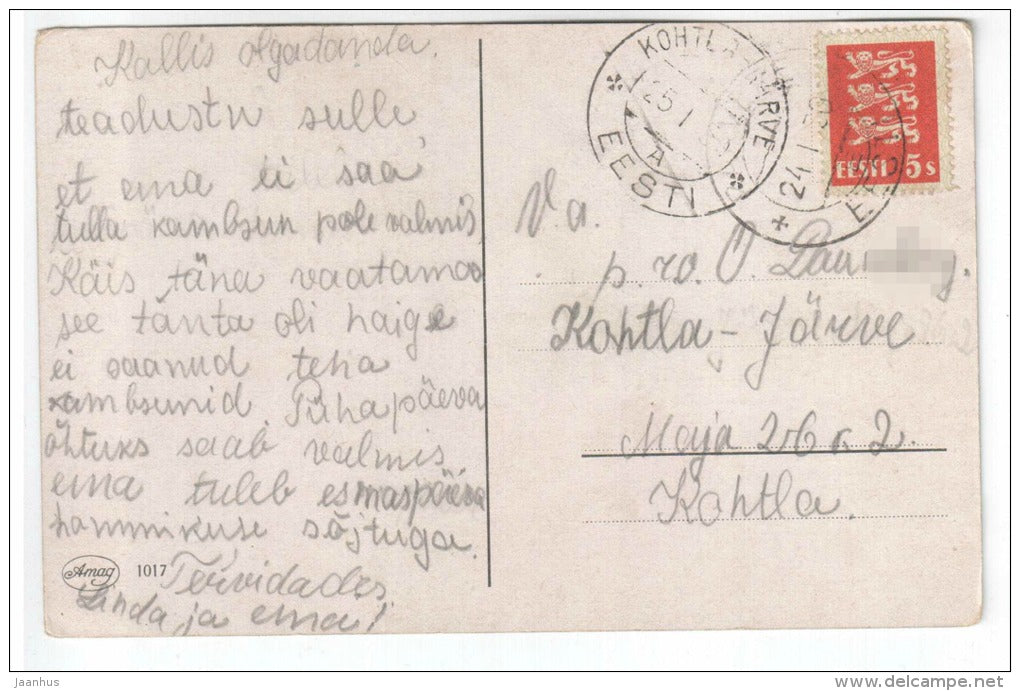 Kallis Olgadanda.
teadustn sulle,
et ema ei saa
tulla kambsun pole valmis
Käis täna vaatamas
see tanta oli haige
ei saanud teha
kambsunid Pühapäeva
õhtuks saab valmis
ema tuleb esmaspäeva
hommikuse sõjtuga.
Tervidades
Linda ja ema!
Amag 1017
KOHTLA-JÄRVE
25 I
A
EESTI
24 I
EESTI 5 s
V. a.
p. ro. O.
Kohtla-Järve
Maja 26 k. 2.
Kohtla.
jaanhus
www.delcampe.net